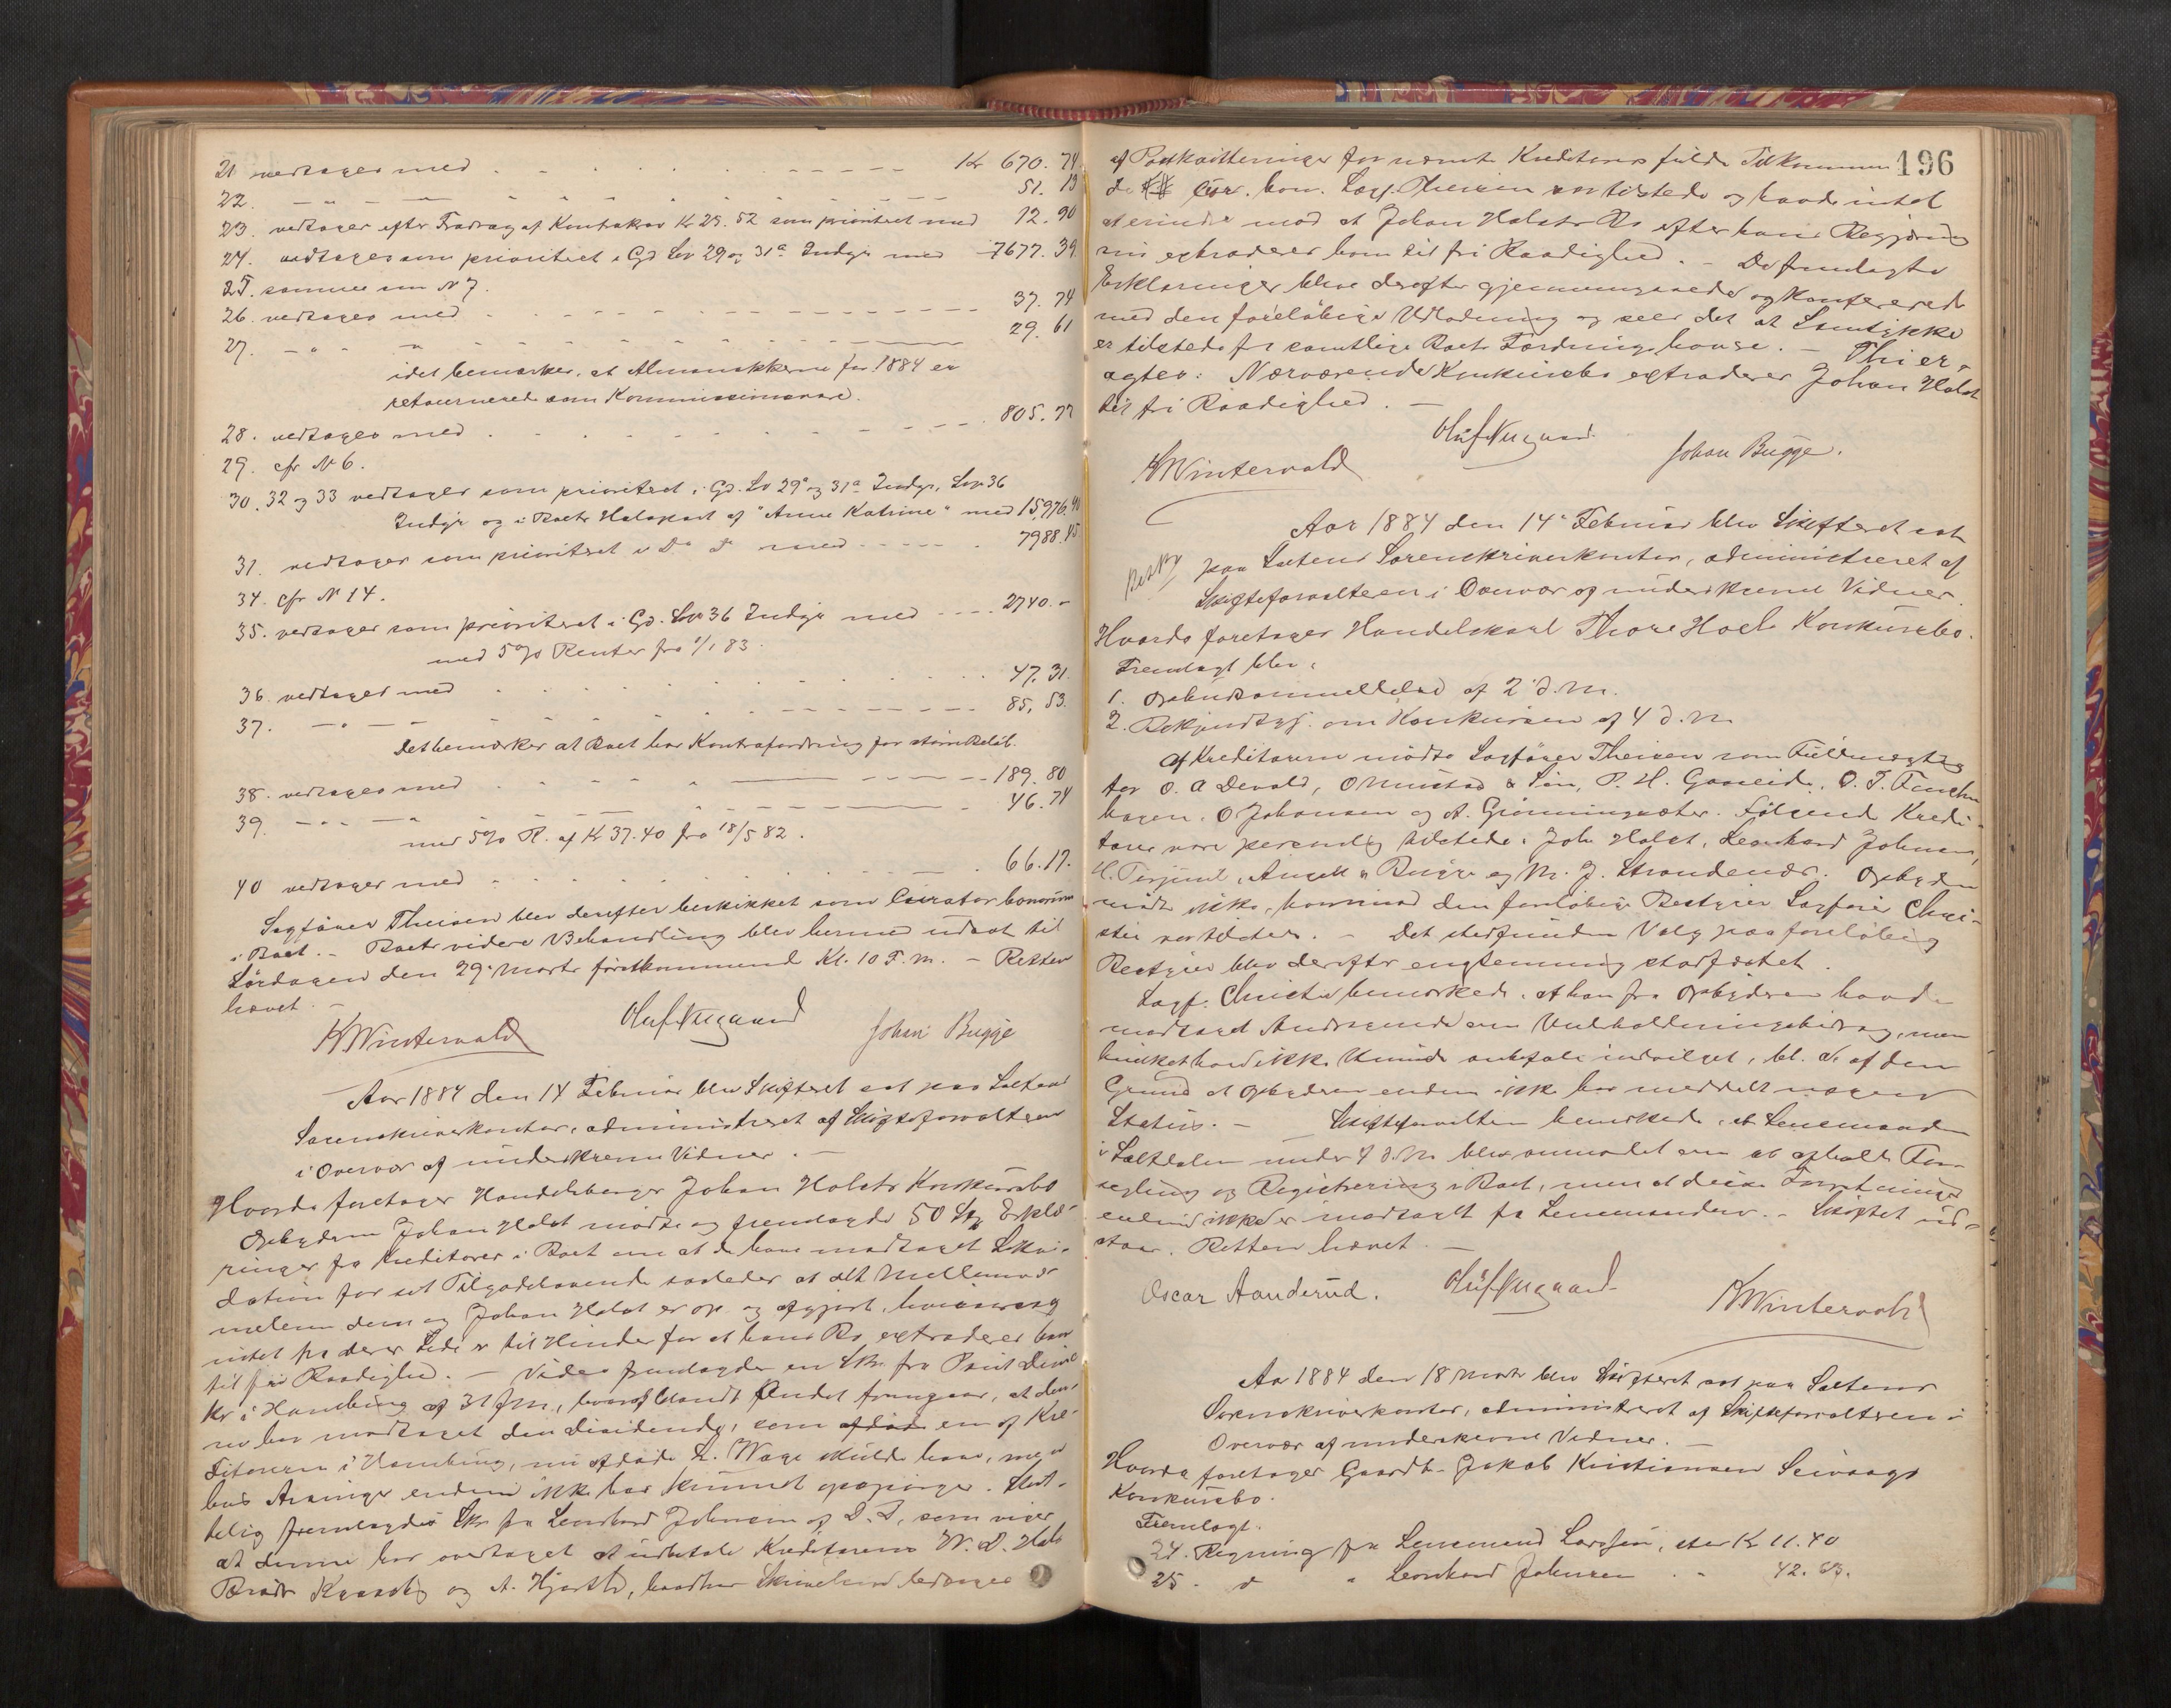 21 vedtages med . . . . Kr 670. 74
22. — " — 51. 13
23. vedtages efter Fradrag af Kontrakrav Kr 25. 52 som prioritet med 12. 90
24. vedtages som prioritet i Gd Lov 29 og 31ᵃ Indgr med 7677. 39
25. samme som N 7.
26. vedtages med 37. 74
27. — " — 29. 61
idet bemærkes, at Almanakkerne for 1884 er
retournerede som Kommissionsvare.
28. vedtages med 805. 77
29. cfr N 6.
30. 32 og 33 vedtages som prioritet i Gd. Lov 29 og 31ᵃ Indgr, Lov 36
Indgr og i Boets Halvpart af "Anne Katrine" med 15,976. 90
31. vedtages som prioritet i Do Do med 7988. 45
34. cfr N 14.
35. vedtages som prioritet i Gd. Lov 36 Indgr med 2740. -
med 5 % Renter fra 1/1 83.
36. vedtages med 47. 31.
37. — " — 85. 53.
Det bemærkes at Boet har Kontrafordring for større Beløb.
38. vedtages med 189. 80
39. — " — 46. 74
med 5 % R. af Kr 37. 40 fra 18/5 82.
40 vedtages med 66. 17.
Sagfører Theisen blev derefter beskikket som Curator bonorum
i Boet. - Boets videre Behandling blev herme udsat til
Lørdagen den 29. Marts førstkommend Kl. 10 F. m. - Retten
hævet. -
K Wintervold Oluf Nygaard Johan Bugge
Aar 1884 den 14 Februar blev Skifteret sat paa Saltens
Sorenskriverkontor, administreret af Skifteforvalteren
i Overvær af underskrevne Vidner. -
Hvorda foretages Handelsborger Johan Holsts Konkursbo
Opbyderen Johan Holst mødte og fremlagde 50 Stk Erklæ-
ringer fra Kreditorer i Boet om at de have modtaget Likvi-
dation for sit Tilgodehavende saaledes at alt Mellemvær
mellem dem og Johan Holst er op- og afgjort, hvorimod
intet fra deres Side er til Hinder for at hans Bo extraderes ham
til fri Raadighed. - Videre fremlagdes en Skr. fra
i Hamburg af 31 f. m., hvoraf blandt Andet fremgaar, at den-
ne har modtaget den Dividende, som afdøde en af Kre-
ditorerne i Hamburg, nu afdøde L. Wage skulde have, men
hvis Arvinger endnu ikke har kunnet opspørges. Slut-
telig fremlagdes Skr. fra Leonhard Johnsen af D. D., som viser
at denne har overtaget at udbetale Kreditorerne W. D. Hals
Brødr og A. Hjorth,
196
af Postkvitteringer for nævnte Kreditorers fulde Tilkommen-
de. Cur. bon. Sagf. Theisen var tilstede og havde intet
at erindre mod at Johan Holsts Bo efter hans Begjæring
nu extraderes ham til fri Raadighed. - De fremlagte
Erklæringer bleve derefter gjennemgaaede og konfererede
med den foreløbige Udlodning og sees det at Samtykke
er tilstede fra samtlige Boets Fordringshavere. - Thi er-
agtes: Nærværende Konkursbo extraderes Johan Holst
til fri Raadighed. -
K Wintervold Oluf Nygaard Johan Bugge.
Aar 1884 den 14. Februar blev Skifteret sat
paa Saltens Sorenskriverkontor, administreret af
Skifteforvalteren i Overvær af underskrevne Vidner.
Hvorda foretages Handelskarl Thore Hoels Konkursbo.
Fremlagt blev:
1. Opbudsanmeldelse af 2 d. M.
2. Bekjendtgj. om Konkursen af 4 d. M
Af Kreditorerne mødte Sagfører Theisen som Fuldmægtig
for O. A Devold, O Mustad & Søn, P. H. Gaaseide, O. T.
hagen, O Johansen og A. Grønningsæter. Følgende Kredi-
torer vare personlig tilstede: Joh Holst, Leonhard Johnsen,
H. , Angell & Bugge og M. J. Strandenæs. Opbyderen
mødte ikke, hvorimod den foreløbige Bestyrer Sagfører Chri-
ster var tilstede. - Det stedfundne Valg paa foreløbig
Bestyrer blev derefter enstemmig stadfæstet.
Sagf. Christer bemærkede, at han fra Opbyderen havde
modtaget Andragende om Underholdningsbidrag, men
hvilket han ikke kunde anbefale indvilget, bl. A. af den
Grund at Opbyderen endnu ikke har meddelt nogen
Status. - Skifteforvalteren bemærkede, at Lensmanden
i Saltdalen under 4 d. M blev anmodet om at afholde For-
segling og Registrering i Boet, men at disse Forretninger
endnu ikke er modtaget fra Lensmanden. - Skiftet ud-
staar. Retten hævet. -
Oscar Aanderud. Oluf Nygaard K Wintervold
Aar 1884 den 18 Marts blev Skifteret sat paa Saltens
Sorenskriverkontor, administreret af Skifteforvalteren i
Overvær af underskrevne Vidner. -
Hvorda foretages Gaardb. Jakob Kristiansen Seivaags
Konkursbo.
Fremlagt.
24. Regning fra Lensmand Larssen, stor Kr 11. 40
25. d " Leonhard Johnsen " 42. 63.